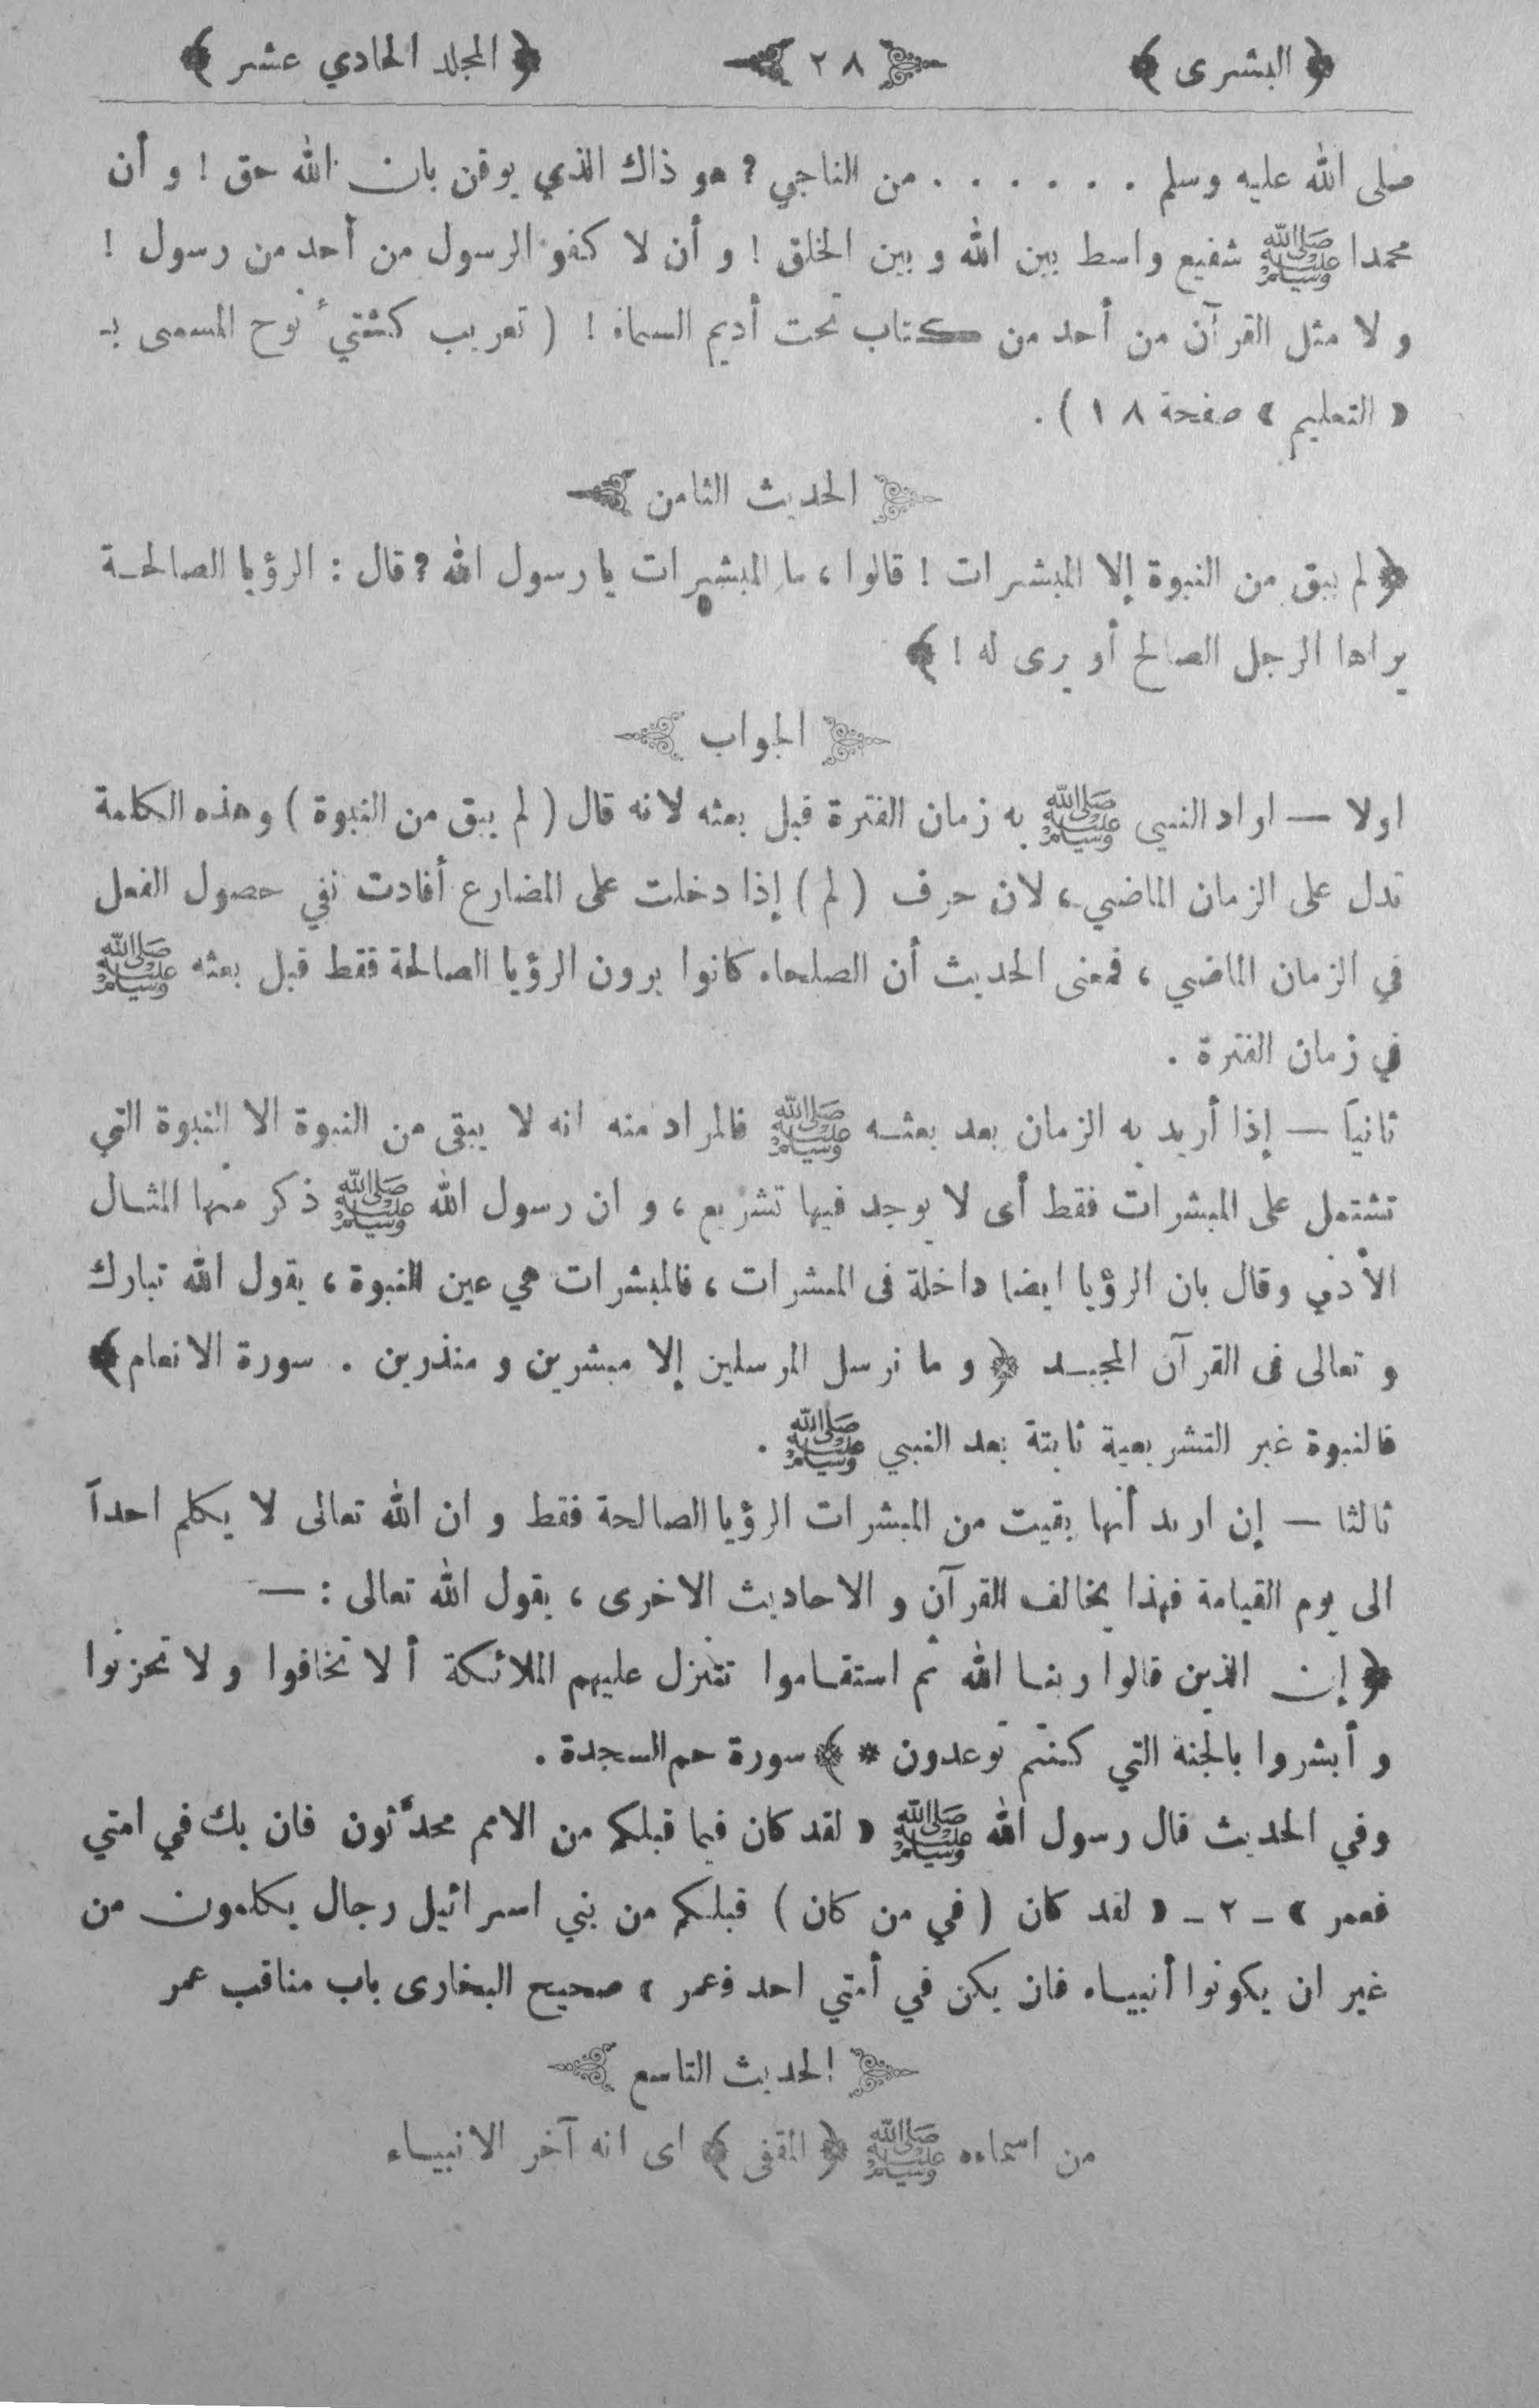 ﴿ البشرى ﴾ ٢٨ ﴿ المجلد الحادي عشر ﴾
صلى الله عليه وسلم . . . . . . من الناجي ? هو ذاك الذي يوقن بان الله حق ! و أن
محمدا ﷺ شفيع واسط بين الله و بين الخلق ! و أن لا كفو الرسول من أحد من رسول !
و لا مثل القرآن من أحد من كتاب تحت أديم السماء ! ( تعريب كشتئ نوح المسمى بـ
« التعليم » صفحة ١٨ ) .
الحديث الثامن
﴿ لم يبق من النبوة إلا المبشرات ! قالوا ، ما المبشرات يا رسول الله ? قال : الرؤيا الصالحـة
يراها الرجل الصالح أو يرى له ! ﴾
الجواب
اولا — اراد النبي ﷺ به زمان الفترة قبل بعثه لانه قال ( لم يبق من النبوة ) وهذه الكلمة
تدل على الزمان الماضي ، لان حرف ( لم ) إذا دخلت على المضارع أفادت نفي حصول الفعل
في الزمان الماضي ، فمعنى الحديث أن الصلحاء كانوا يرون الرؤيا الصالحة فقط قبل بعثه ﷺ
في زمان الفترة .
ثانياً — إذا أريد به الزمان بعد بعثـه ﷺ فالمراد منه انه لا يبقى من النبوة الا النبوة التي
تشتمل على المبشرات فقط أى لا يوجد فيها تشريع ، و ان رسول الله ﷺ ذكر منها المثـال
الأدنى وقال بان الرؤيا ايضا داخلة فى المبشرات ، فالمبشرات هي عين النبوة ، يقول الله تبارك
و تعالى فى القرآن المجيـد ﴿ و ما نرسل المرسلين إلا مبشرين و منذرين . سورة الانعام ﴾
فالنبوة غير التشريعية ثابتة بعد النبي ﷺ .
ثالثا — إن اريد أنها بقيت من المبشرات الرؤيا الصالحة فقط و ان الله تعالى لا يكلم احداً
الى يوم القيامة فهذا يخالف القرآن و الاحاديث الاخرى ، يقول الله تعالى : —
﴿ إن الذين قالوا ربنـا الله ثم استقـاموا تتنزل عليهم الملائكة ألا تخافوا و لا تحزنوا
و أبشروا بالجنة التي كنتم توعدون * ﴾ سورة حم السجدة .
وفي الحديث قال رسول الله ﷺ « لقد كان فيما قبلكم من الامم محدَّثون فان يك في امتي
فعمر » ـ ٢ ـ « لقد كان ( في من كان ) قبلكم من بني اسرائيل رجال يكلمون من
غير ان يكونوا أنبيـاء فان يكن في أمتي احد فعمر » صحيح البخارى باب مناقب عمر
الحديث التاسع
من اسماءه ﷺ ﴿ المقفى ﴾ اى انه آخر الانبيـاء